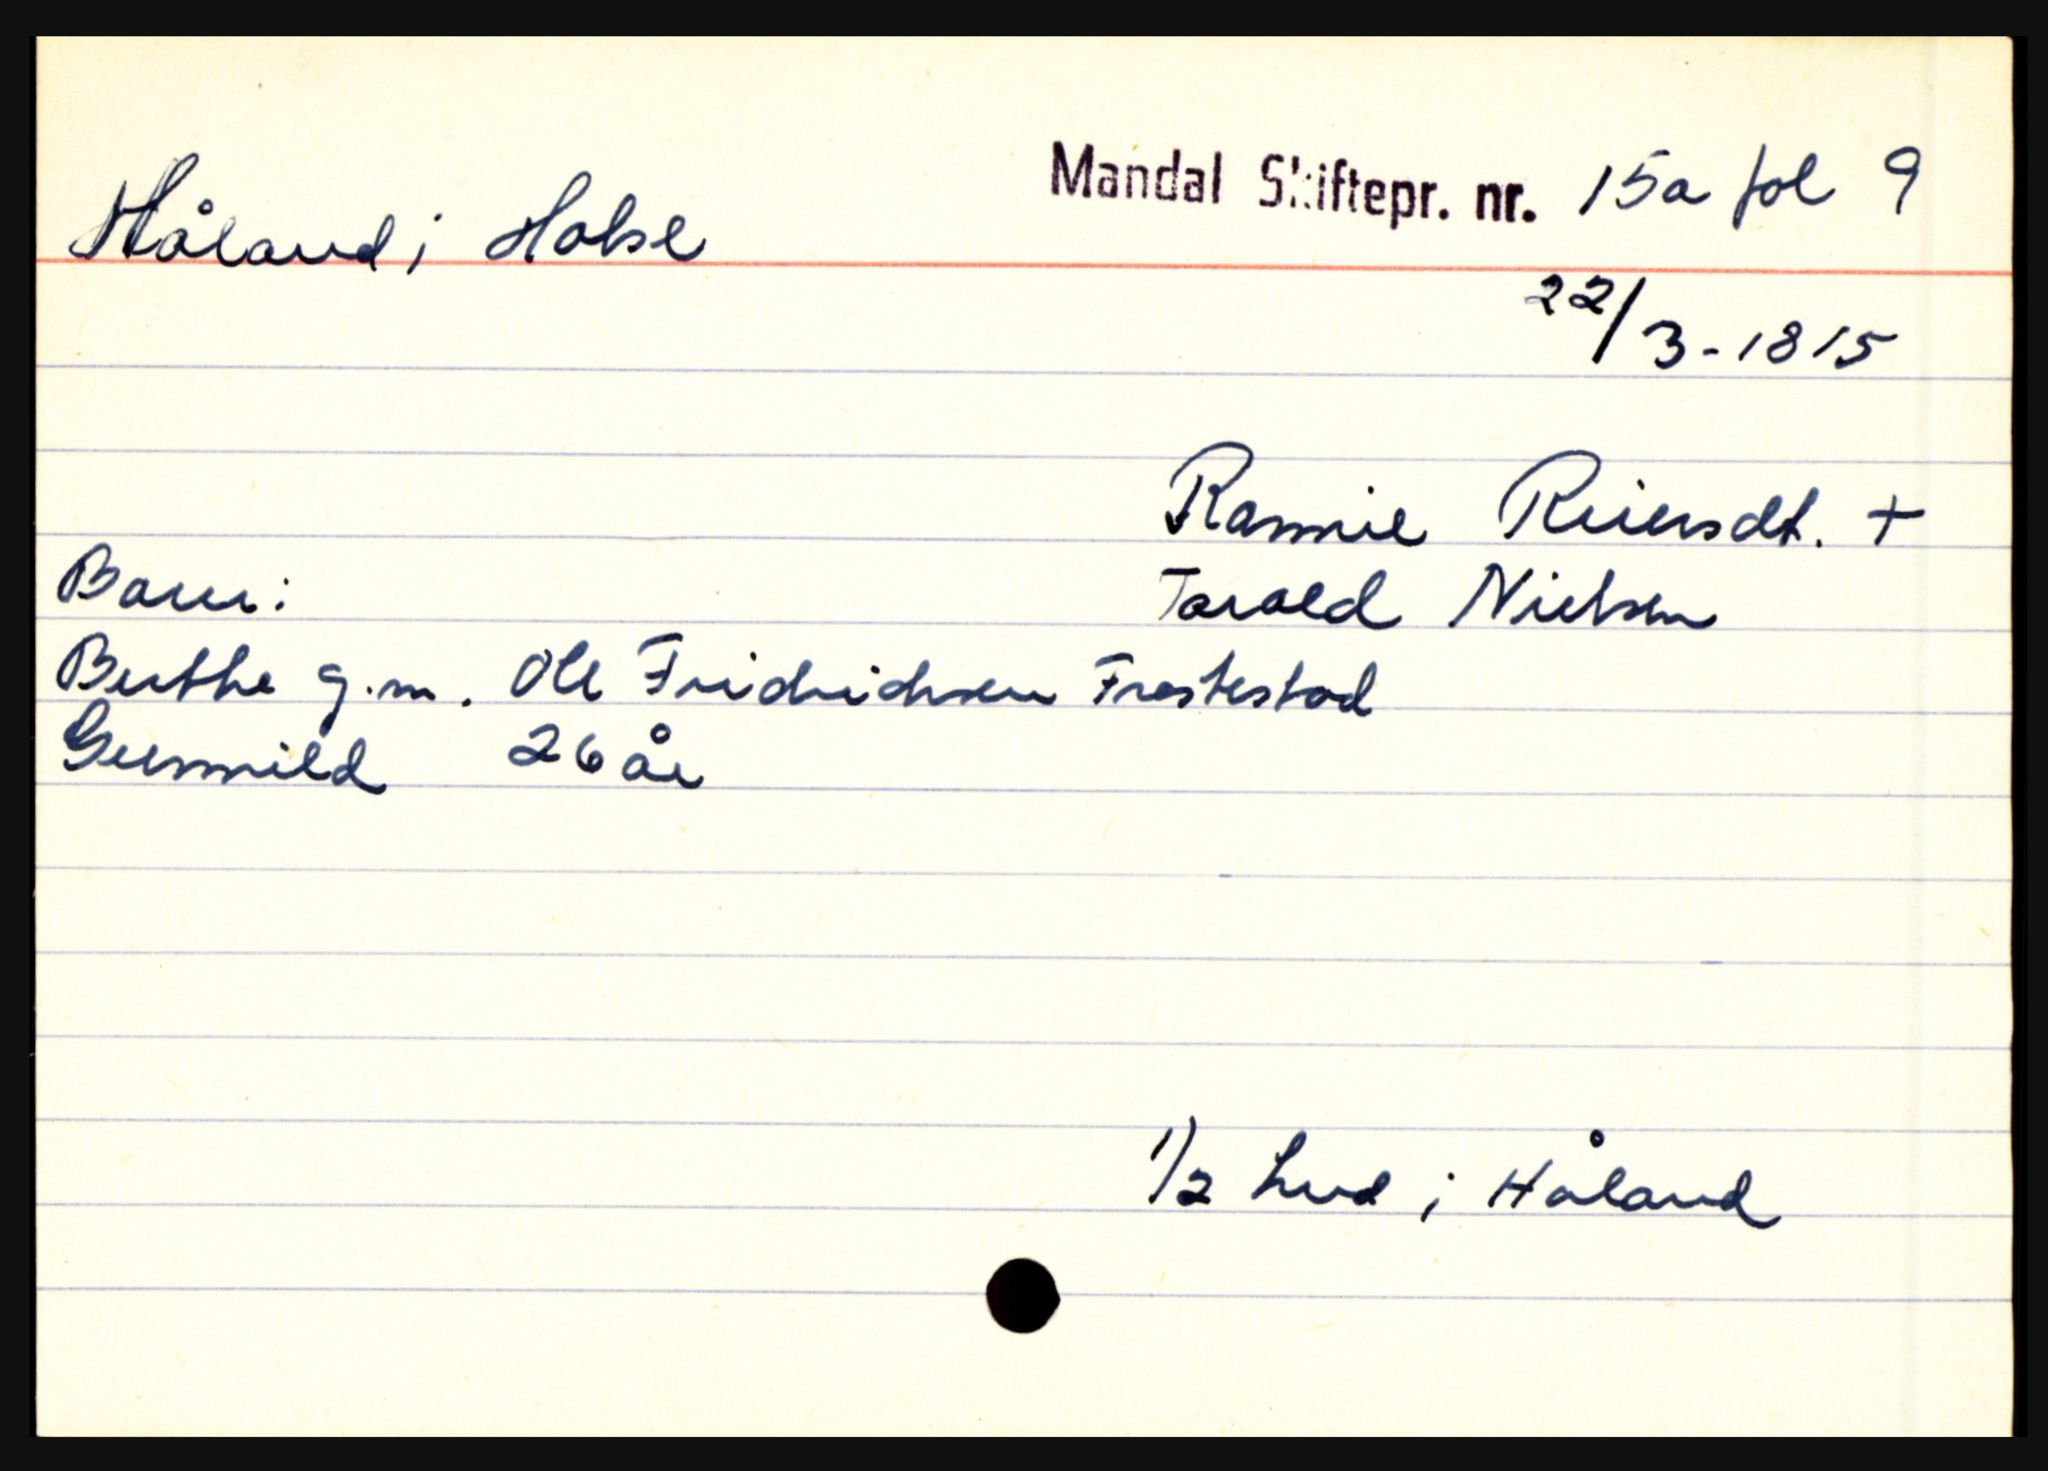 Håland i Halse
Mandal Skiftepr. nr. 15a fol 9
22/3-1815
Rannie Reiersdt. +
Tarald Nielsen
Barn:
Berthe g.m. Ole Fridrichsen Frøstestad
Gunnild 26 år
1/2 hud i Håland